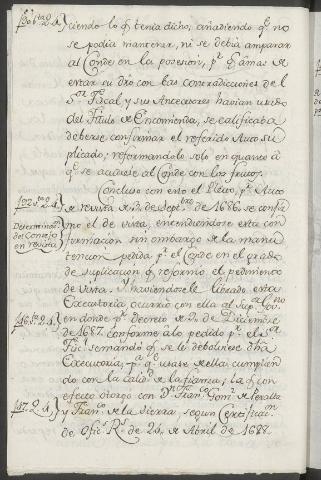 ciendo lo q̃ tenia dicho; añadiendo q.e no
se podia mantener, ni se debia amparar
al Conde en la posesion, p.r q̃ ãmas de
estar su dro con las contradicciones del
S.or Fiscal, y sus Antecesores havian usado
del Titulo de Encomienda, se calificaba
deberse confirmar el referido Auto su
plicado; reformandolo solo en quanto à
q.e se acudiese al Conde con los frutos.
Concluso con esto el Pleito, p.r Auto
de revista de de Sept.re de 1686. se confir
mo el de vista, entendiendose esta con
firmacion sin embargo de la manu
tencion pedida p.r el Conde en el grado
de suplicacion q̃ reformò el pedimento
de vista. Y haviendosele librado esta
Executoria ocurriò con ella al Sup.or Gov.no
en donde p.r Decreto de de Diciembre
de 1687. conforme à lo pedido p.r el S.or
Fis.l se mandò q.e se le debolviese dha
Executoria, p.a q.e usase de ella cumplien
do con la calid.d de la fianza; la q̃ con
efecto otorgò con D.n Fran.co Gom.z de Peralta
y Fran.co de la Sierra, segun Certificac.on
de Ofic.s R.s de 24. de Abril de 1688.
Determinac.on
del Consejo
en revista